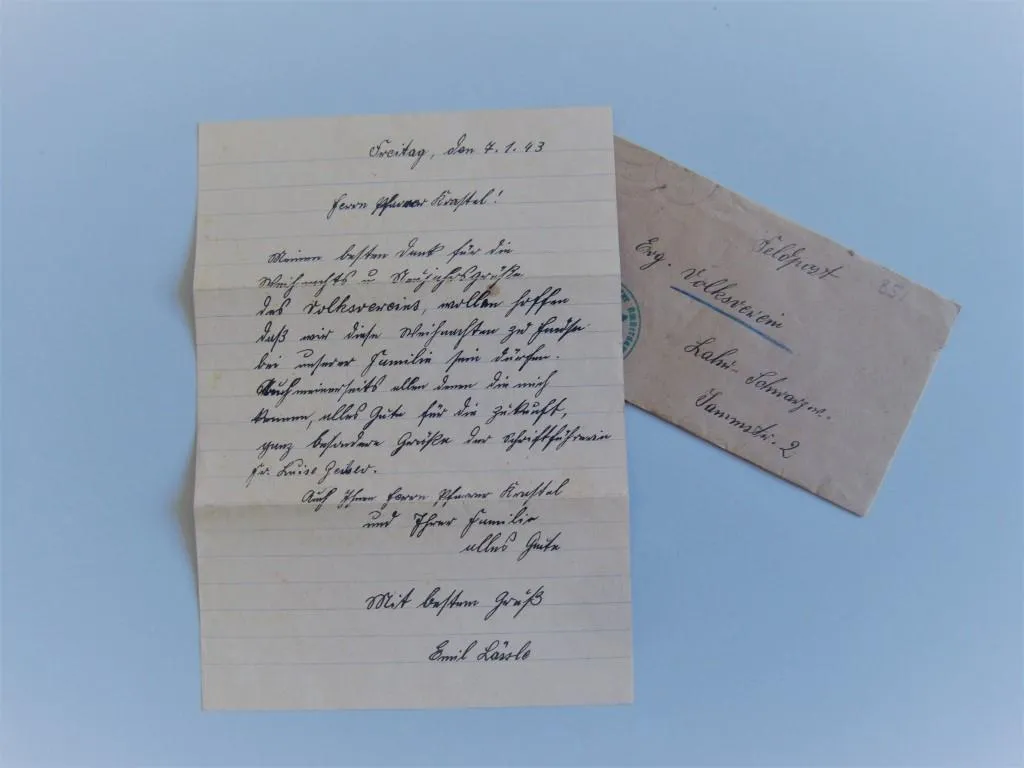 Freitag, den 7.1.43
Herrn Pfarrer Krastel!
Meinen besten Dank für die
Weihnachts u Neujahrsgrüße
des Volksvereins, wollen hoffen
daß wir diese Weihnachten zu Hause
bei unserer Familie sein dürfen.
Auch meinerseits allen denen die mich
kennen, alles Gute für die Zukunft,
ganz besondere Grüße der Schriftführerin
Fr. Luise
Auch Ihnen Herrn Pfarrer Krastel
und Ihrer Familie
alles Gute
Mit bestem Gruß
Emil Lässle
Feldpost
851
Evg. Volksverein
Lahr-Schwarzw.
2